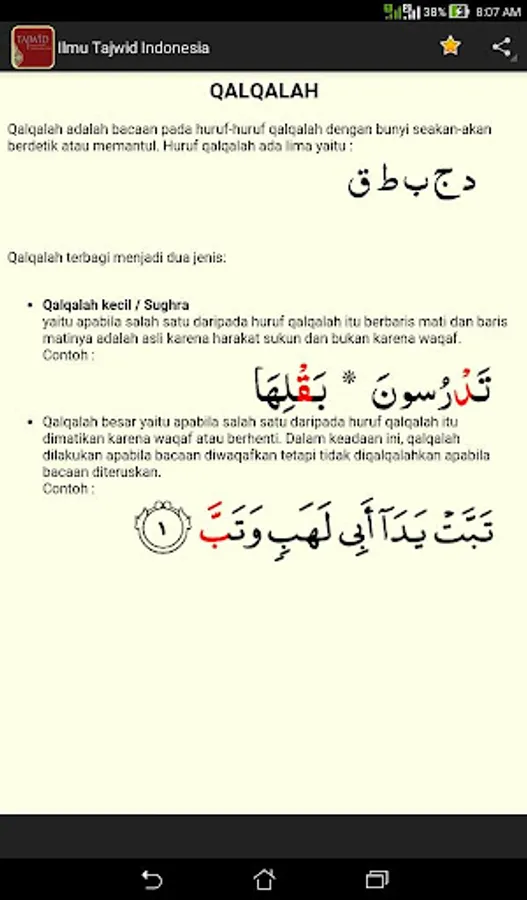 38% 8:07 AM
TAJWID
Ilmu Tajwid Indonesia
QALQALAH
Qalqalah adalah bacaan pada huruf-huruf qalqalah dengan bunyi seakan-akan
berdetik atau memantul. Huruf qalqalah ada lima yaitu :
د ج ب ط ق
Qalqalah terbagi menjadi dua jenis:
• Qalqalah kecil / Sughra
yaitu apabila salah satu daripada huruf qalqalah itu berbaris mati dan baris
matinya adalah asli karena harakat sukun dan bukan karena waqaf.
Contoh :
تَدْرُسونَ * بَقْلِهَا
• Qalqalah besar yaitu apabila salah satu daripada huruf qalqalah itu
dimatikan karena waqaf atau berhenti. Dalam keadaan ini, qalqalah
dilakukan apabila bacaan diwaqafkan tetapi tidak diqalqalahkan apabila
bacaan diteruskan.
Contoh :
تَبَّتْ يَدَآ أَبِي لَهَبٍ وَتَبَّ ١